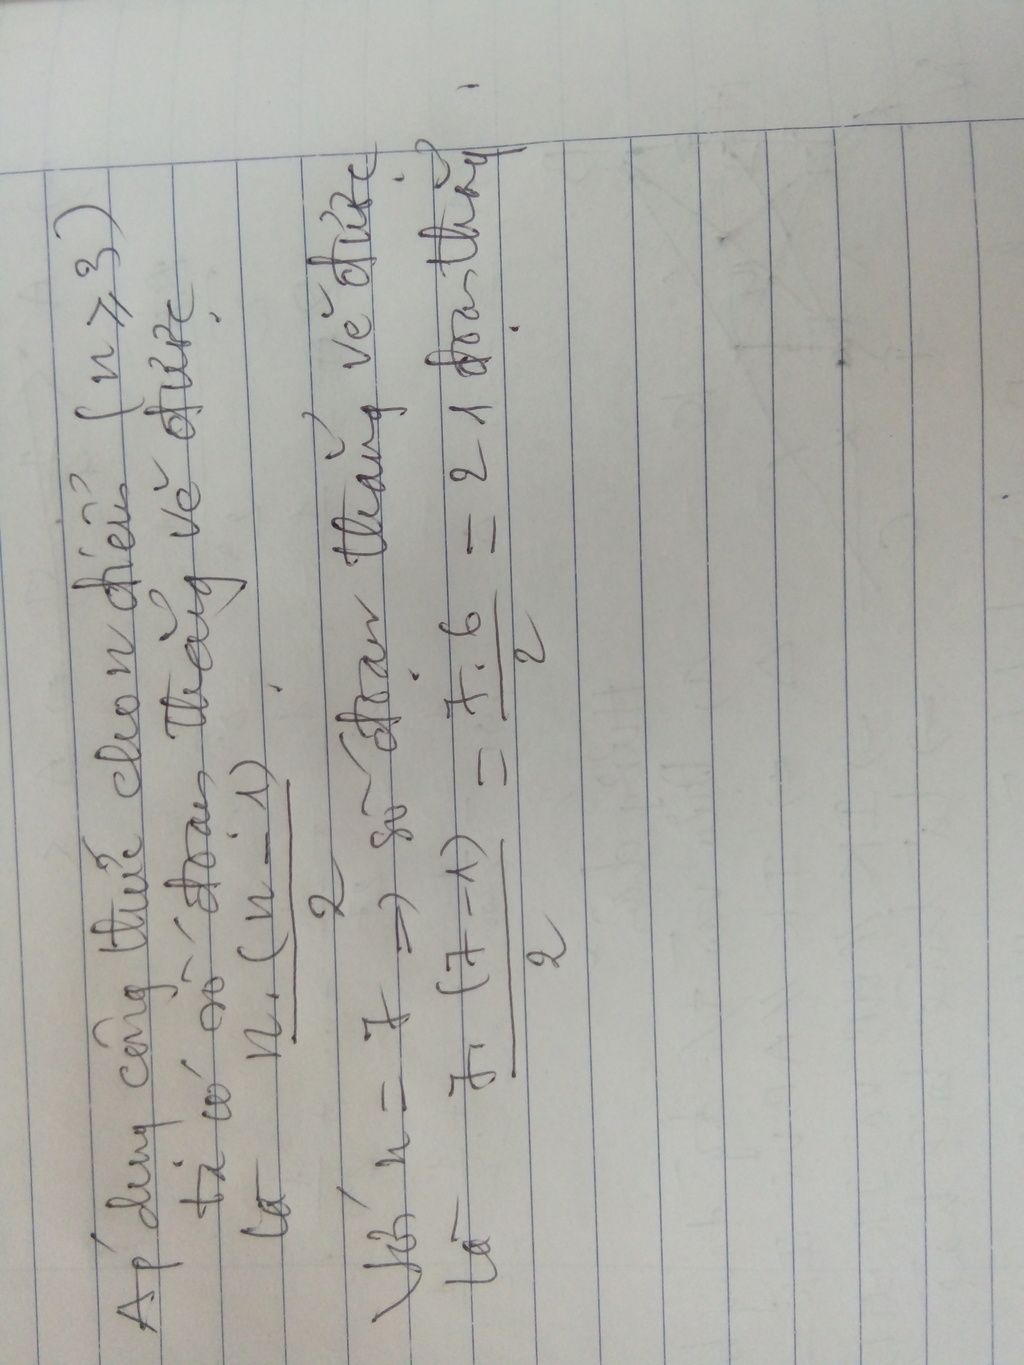 Áp dụng công thức cho n điểm (n ≥ 3)
ta có số đoạn thẳng vẽ được
là n.(n-1)
2
Với n = 7 => số đoạn thẳng vẽ được
là 7.(7-1) = 7.6 = 21 đoạn thẳng.
2 2